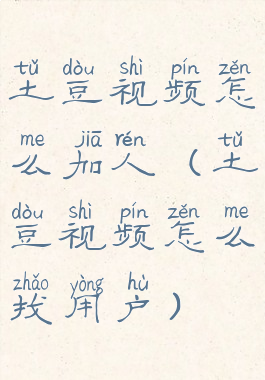 tǔ dòu shì pín zěn
土豆视频怎
me jiā rén tǔ
么加人（土
dòu shì pín zěn me
豆视频怎么
zhǎo yòng hù
找用户）